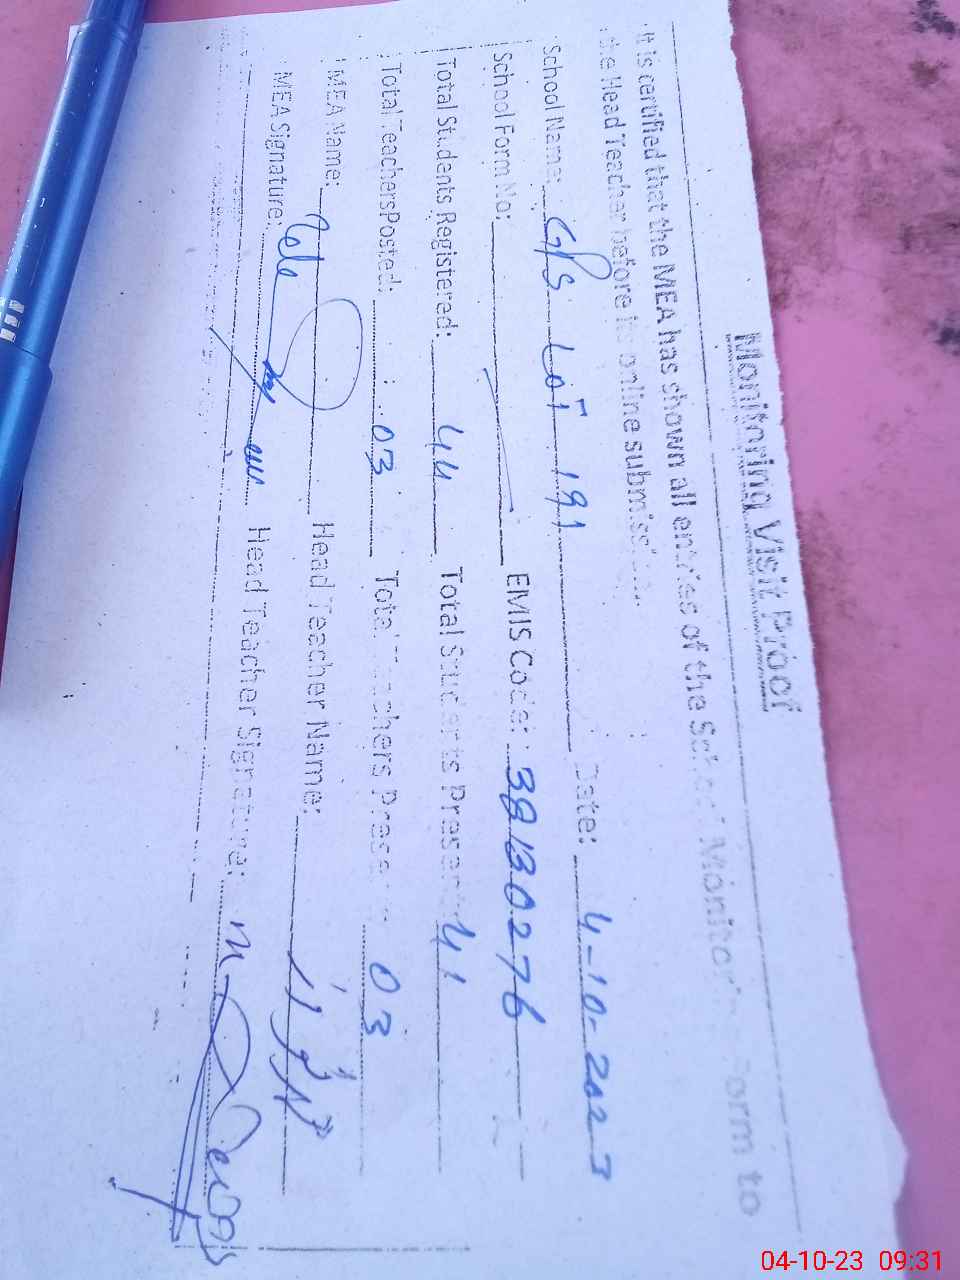 Monitoring Visit Proof
It is certified that the MEA has shown all entries of the School Monitoring Form to
the Head Teacher before its online submission.
School Name: GPS Lot 191 Date: 4-10-2023
School Form No: EMIS Code: 38130276
Total Students Registered: 44 Total Students Present 41
Total Teachers Posted: 03 Total Teachers Present 03
MEA Name: Head Teacher Name:
MEA Signature: Head Teacher Signature:
04-10-23 09:31